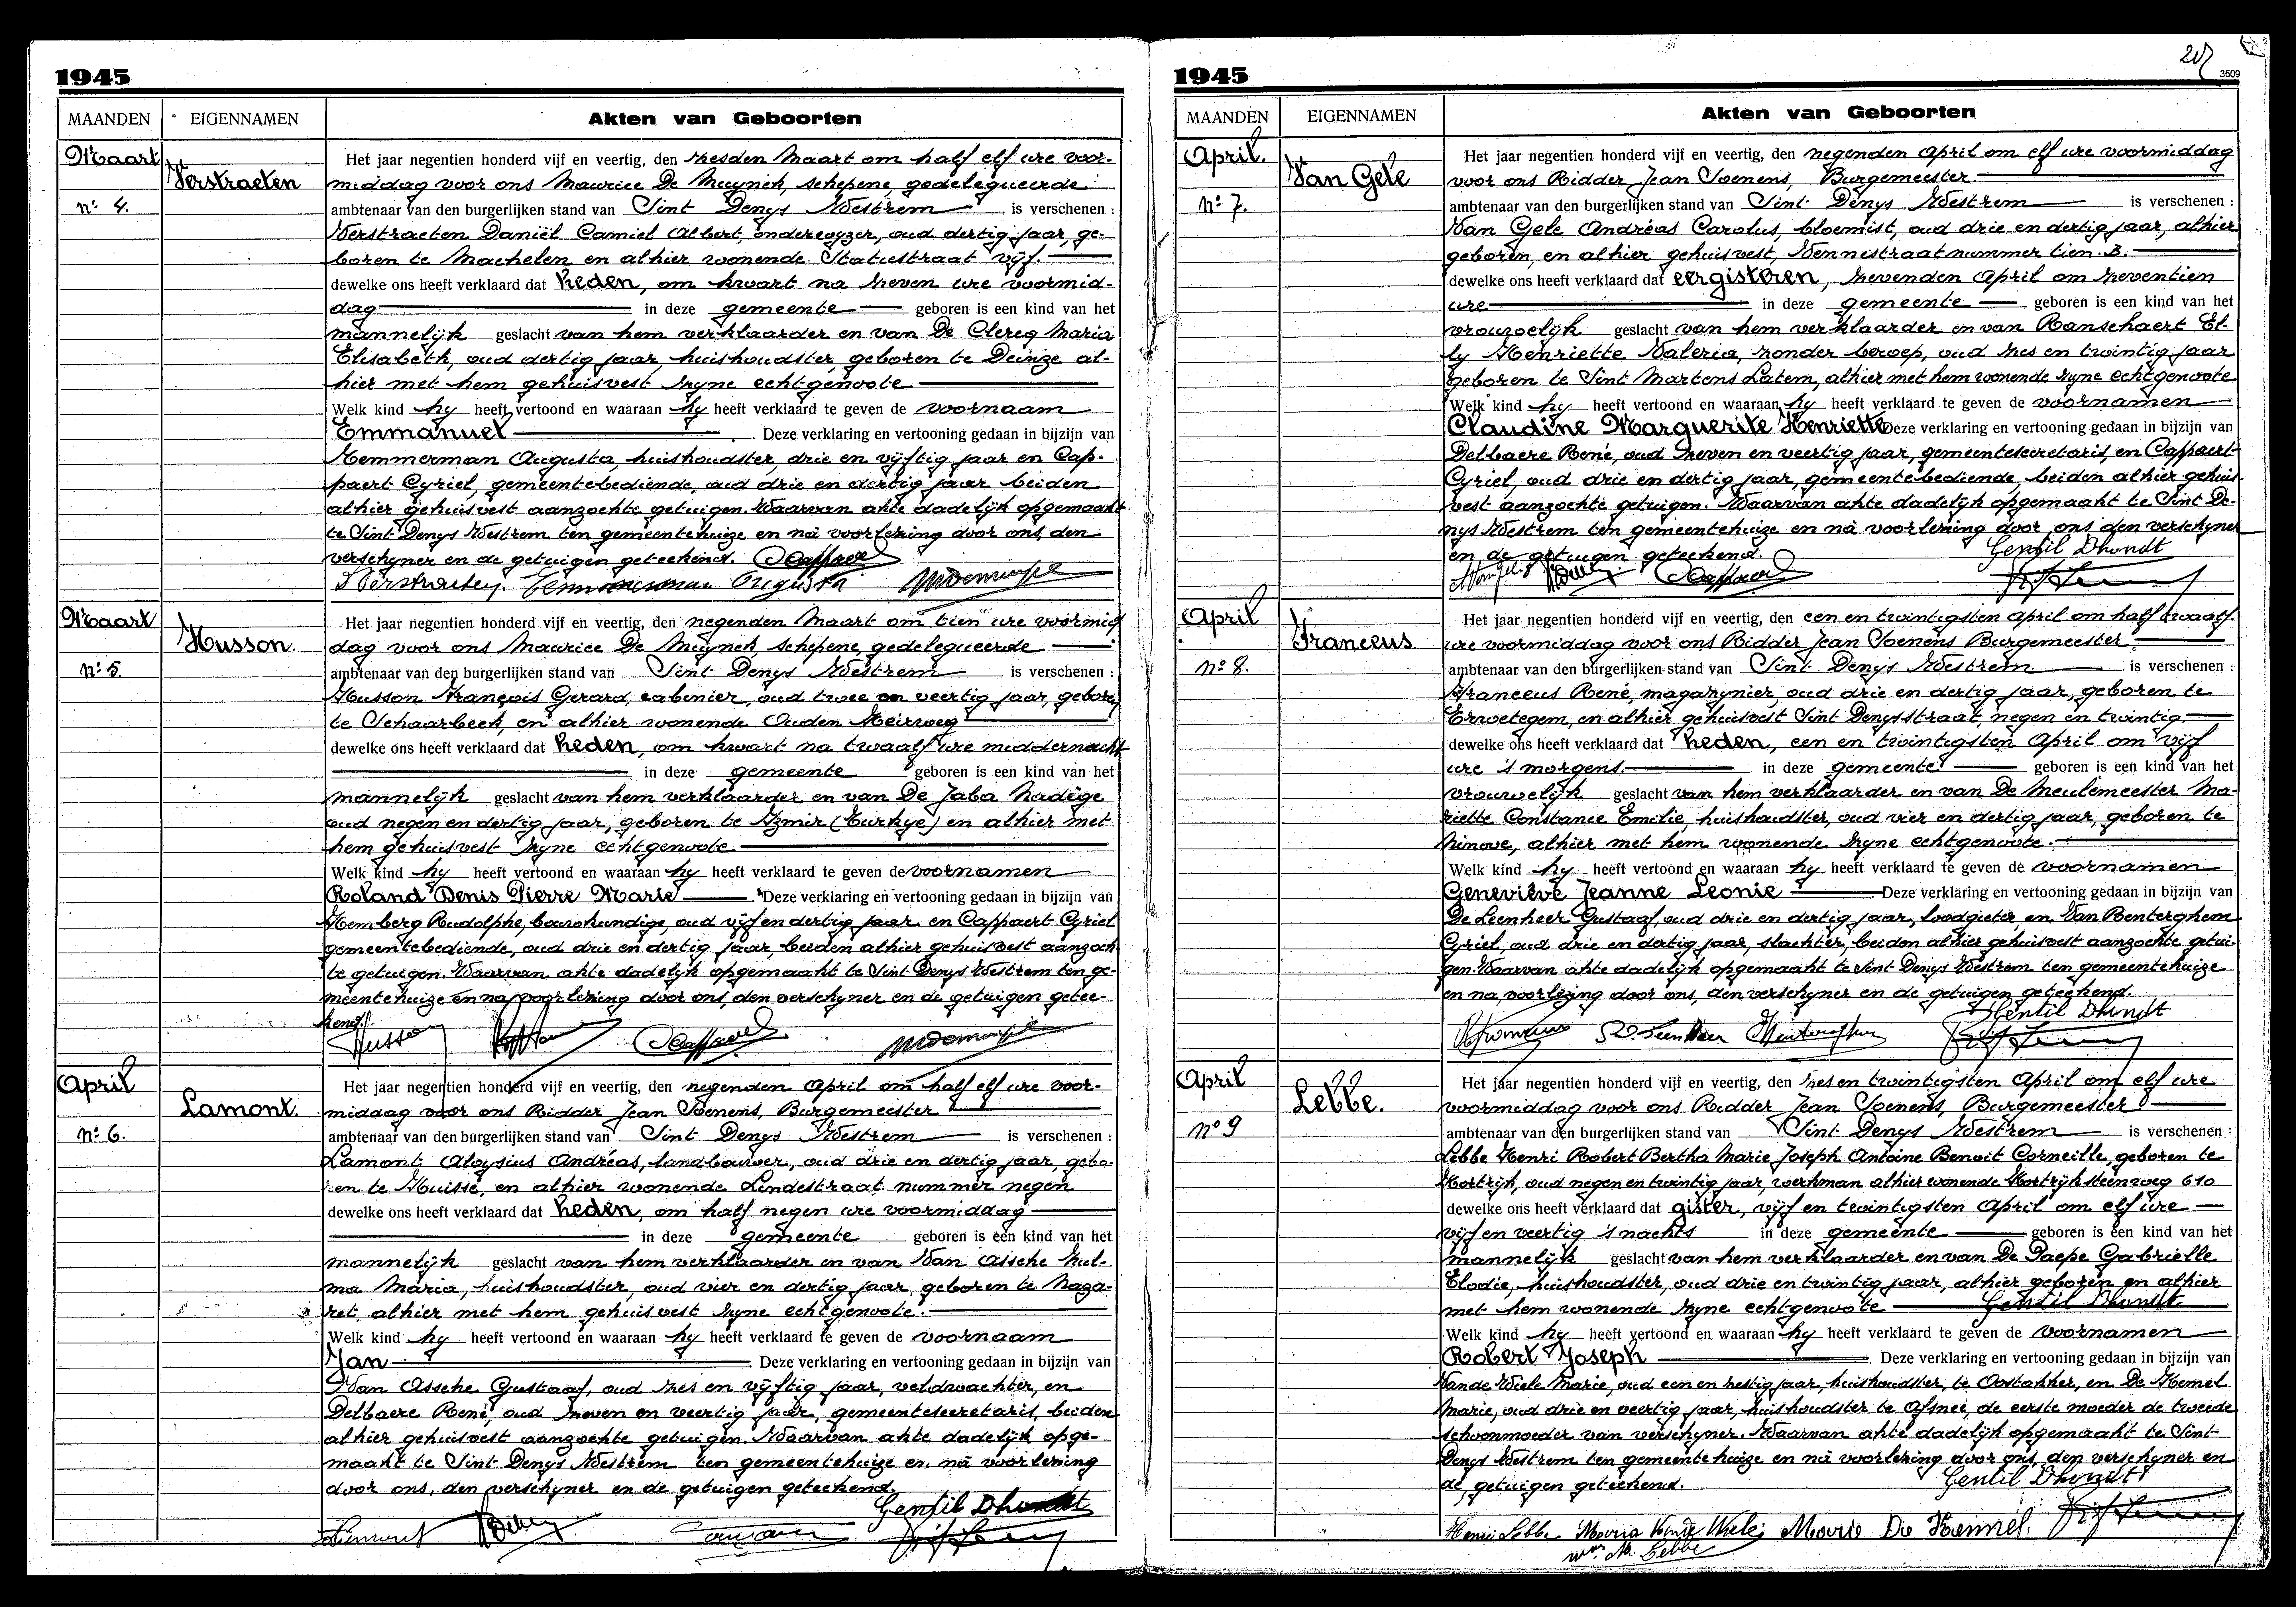 1945
MAANDEN
EIGENNAMEN
Akten van Geboorten
Maart
Verstraeten
n: 4.
Het jaar negentien honderd vijf en veertig, den zesden Maart om half elf ure voor-
middag voor ons Maurice De Muynck, schepene, gedelegueerde
ambtenaar van den burgerlijken stand van Sint Denys Westrem is verschenen :
Verstraeten Daniël Camiel Albert, onderwyzer, oud dertig jaar, ge-
boren te Machelen en alhier wonende Statiestraat vijf.
dewelke ons heeft verklaard dat heden, om kwart na zeven ure voormid-
dag in deze gemeente geboren is een kind van het
mannelijk geslacht van hem verklaarder en van De Clercq Maria
Elisabeth, oud dertig jaar, huishoudster, geboren te Deinze al-
hier met hem gehuisvest zyne echtgenoote
Welk kind hy heeft vertoond en waaraan hy heeft verklaard te geven de voornaam
Emmanuel. Deze verklaring en vertooning gedaan in bijzijn van
Temmerman Augusta, huishoudster, drie en vijftig jaar en Cap-
paert Cyriel, gemeentebediende, oud drie en dertig jaar beiden
alhier gehuisvest aanzochte getuigen. Waarvan akte dadelijk opgemaakt
te Sint Denys Westrem ten gemeentehuize en nà voorlezing door ons, den
verschyner en de getuigen geteekend. CCappaert
Verstraeten Temmerman Augusta MDemuynck
Maart
Husson.
n: 5.
Het jaar negentien honderd vijf en veertig, den negenden Maart om tien ure voormid
dag voor ons Maurice De Muynck, schepene, gedelegueerde
ambtenaar van den burgerlijken stand van Sint Denys Westrem is verschenen :
Husson François Gerard, cabinier, oud twee en veertig jaar, geboren
te Schaarbeek, en alhier wonende Ouden Heirweg
dewelke ons heeft verklaard dat heden, om kwart na twaalf ure middernacht
in deze gemeente geboren is een kind van het
mannelijk geslacht van hem verklaarder en van De Jaba Nadège
oud negen en dertig jaar, geboren te Izmir (Turkye) en alhier met
hem gehuisvest zyne echtgenoote
Welk kind hy heeft vertoond en waaraan hy heeft verklaard te geven de voornamen
Roland Denis Pierre Marie. Deze verklaring en vertooning gedaan in bijzijn van
Hemberg Rudolphe, bouwkundige, oud vijf en dertig jaar en Cappaert Cyriel
gemeentebediende, oud drie en dertig jaar, beiden alhier gehuisvest aanzoch
te getuigen. Waarvan akte dadelyk opgemaakt te Sint Denys Westrem ten ge-
meentehuize en na voorlezing door ons, den verschyner en de getuigen getee-
kend.
Husson CCappaert MDemuynck
April
Lamont.
n: 6.
Het jaar negentien honderd vijf en veertig, den negenden April om half elf ure voor-
middag voor ons Ridder Jean Soenens, Burgemeester
ambtenaar van den burgerlijken stand van Sint Denys Westrem is verschenen :
Lamont Aloysius Andréas, landbouwer, oud drie en dertig jaar, gebo-
ren te Huisse, en alhier wonende Lindestraat nummer negen
dewelke ons heeft verklaard dat heden, om half negen ure voormiddag
in deze gemeente geboren is een kind van het
mannelijk geslacht van hem verklaarder en van Van Assche Zul-
ma Maria, huishoudster, oud vier en dertig jaar, geboren te Naza-
ret, alhier met hem gehuisvest zyne echtgenoote.
Welk kind hy heeft vertoond en waaraan hy heeft verklaard te geven de voornaam
Jan. Deze verklaring en vertooning gedaan in bijzijn van
Van Assche Gustaaf, oud zes en vijftig jaar, veldwachter, en
Delbaere René, oud zeven en veertig jaar, gemeentesecretaris, beiden
alhier gehuisvest aanzochte getuigen. Waarvan akte dadelyk opge-
maakt te Sint Denys Westrem ten gemeentehuize en nà voorlezing
door ons, den verschyner en de getuigen geteekend.
Gentil Dhondt
Lamont
1945
3609
MAANDEN
EIGENNAMEN
Akten van Geboorten
April.
Van Gele
n: 7.
Het jaar negentien honderd vijf en veertig, den negenden April om elf ure voormiddag
voor ons Ridder Jean Soenens, Burgemeester
ambtenaar van den burgerlijken stand van Sint Denys Westrem is verschenen :
Van Gele Andréas Carolus, bloemist, oud drie en dertig jaar, alhier
geboren, en alhier gehuisvest, Vennestraat nummer tien B.
dewelke ons heeft verklaard dat eergisteren, zevenden April om zeventien
ure in deze gemeente geboren is een kind van het
vrouwelijk geslacht van hem verklaarder en van Ranschaert El-
ly Henriette Valeria, zonder beroep, oud zes en twintig jaar
geboren te Sint Martens Latem, alhier met hem wonende zyne echtgenoote
Welk kind hy heeft vertoond en waaraan hy heeft verklaard te geven de voornamen
Claudine Marguerite Henriette Deze verklaring en vertooning gedaan in bijzijn van
Delbaere René, oud zeven en veertig jaar, gemeentesecretaris, en Cappaert
Cyriel, oud drie en dertig jaar, gemeentebediende, beiden alhier gehuis
vest aanzochte getuigen. Waarvan akte dadelyk opgemaakt te Sint De-
nys Westrem ten gemeentehuize en nà voorlezing door ons den verschyner
en de getuigen geteekend.
Gentil Dhondt
CCappaert
April
Franceus.
n: 8.
Het jaar negentien honderd vijf en veertig, den een en twintigsten April om half twaalf
ure voormiddag voor ons Ridder Jean Soenens Burgemeester
ambtenaar van den burgerlijken stand van Sint Denys Westrem is verschenen :
Franceus René, magazynier, oud drie en dertig jaar, geboren te
Erwetegem, en alhier gehuisvest Sint Denysstraat, negen en twintig.
dewelke ons heeft verklaard dat heden, een en twintigsten April om vijf
ure 's morgens. in deze gemeente geboren is een kind van het
vrouwelijk geslacht van hem verklaarder en van De Meulemeester Ma-
riette Constance Emilie, huishoudster, oud vier en dertig jaar, geboren te
Ninove, alhier met hem wonende zyne echtgenoote.
Welk kind hy heeft vertoond en waaraan hy heeft verklaard te geven de voornamen
Geneviève Jeanne Leonie Deze verklaring en vertooning gedaan in bijzijn van
De Leenheer Gustaaf, oud drie en dertig jaar, loodgieter, en Van Renterghem
Cyriel, oud drie en dertig jaar, slachter, beiden alhier gehuisvest aanzochte getui-
gen. Waarvan akte dadelyk opgemaakt te Sint Denys Westrem ten gemeentehuize
en na voorlezing door ons, den verschyner en de getuigen geteekend.
Gentil Dhondt
April
Lebbe.
n: 9
Het jaar negentien honderd vijf en veertig, den zes en twintigsten April om elf ure
voormiddag voor ons Ridder Jean Soenens, Burgemeester
ambtenaar van den burgerlijken stand van Sint Denys Westrem is verschenen :
Lebbe Henri Robert Bertha Marie Joseph Antoine Benoit Corneille, geboren te
Kortrijk, oud negen en twintig jaar, werkman alhier wonende Kortrijksteenweg 610
dewelke ons heeft verklaard dat gister, vijf en twintigsten April om elf ure
vijf en veertig 's nachts in deze gemeente geboren is een kind van het
mannelijk geslacht van hem verklaarder en van De Paepe Gabrielle
Elodie, huishoudster, oud drie en twintig jaar, alhier geboren en alhier
met hem wonende zyne echtgenoote Gentil Dhondt
Welk kind hy heeft vertoond en waaraan hy heeft verklaard te geven de voornamen
Robert Joseph. Deze verklaring en vertooning gedaan in bijzijn van
Vande Wiele Marie, oud een en zestig jaar, huishoudster, te Oostakker, en De Kemel
Marie, oud drie en veertig jaar, huishoudster te Afsneé, de eerste moeder de tweede
schoonmoeder van verschyner. Waarvan akte dadelyk opgemaakt te Sint
Denys Westrem ten gemeentehuize en nà voorlezing door ons, den verschyner en
de getuigen geteekend. Gentil Dhondt
Henri Lebbe Maria Vande Wiele Marie De Kemel.